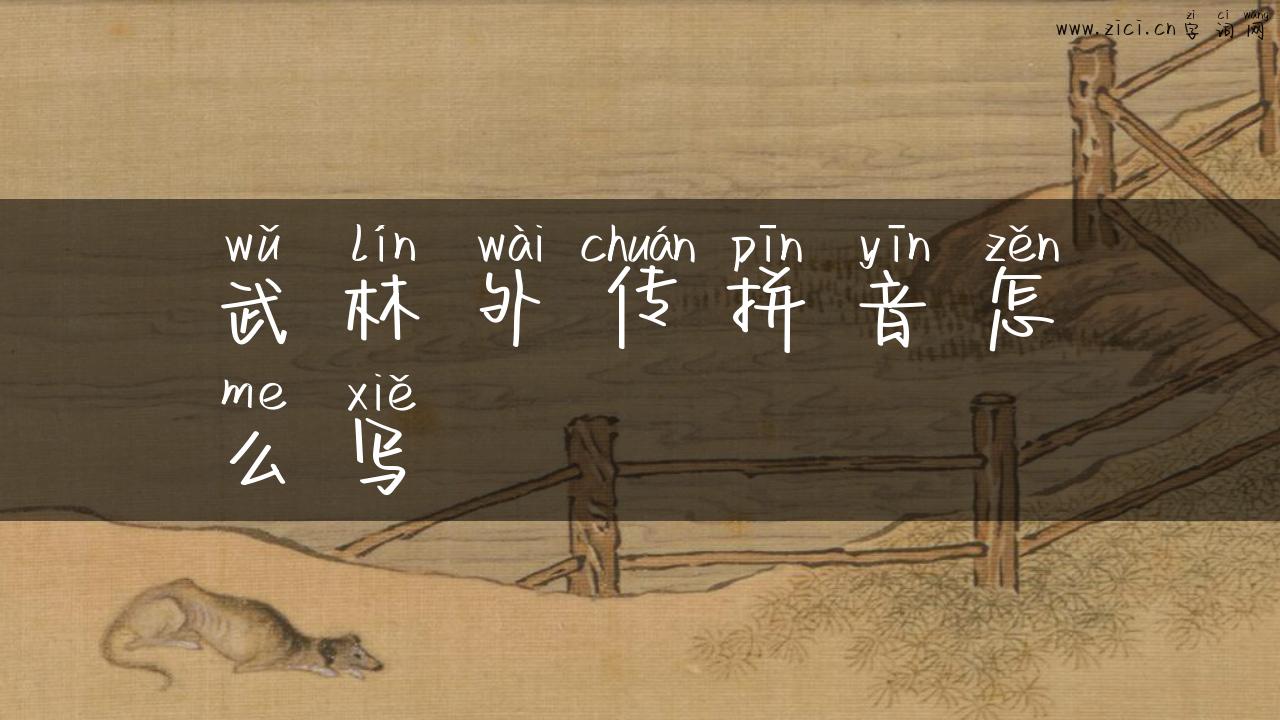 zì cí wǎng
www.zici.cn 字词网
wǔ lín wài chuán pīn yīn zěn
武林外传拼音怎
me xiě
么写